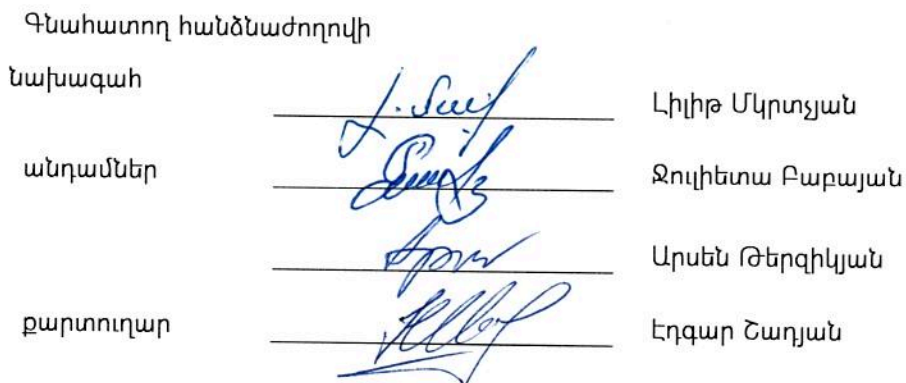 Գնահատող հանձնաժողովի
նախագահ Լիլիթ Մկրտչյան
անդամներ Ջուլիետա Բաբայան
Արսեն Թերզիկյան
քարտուղար Էդգար Շադյան